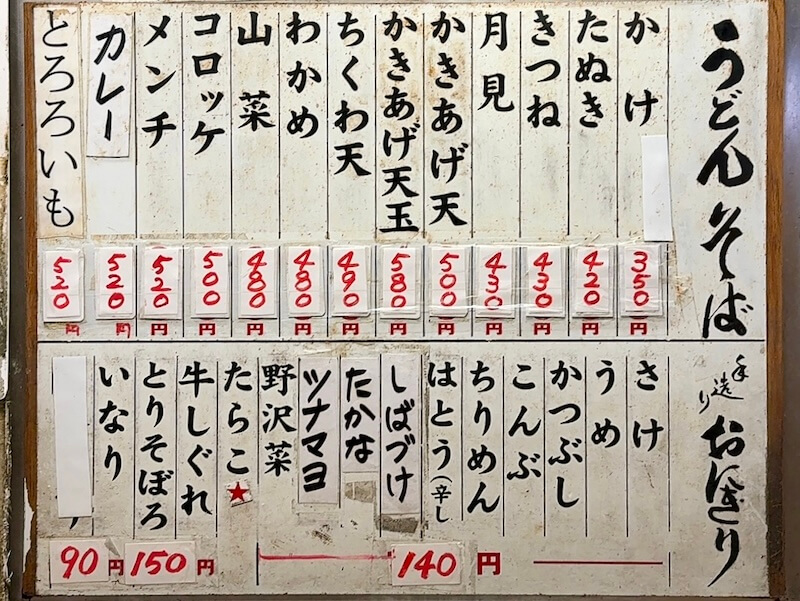 うどん そば
かけ 350円
たぬき 420円
きつね 430円
月見 430円
かきあげ天 500円
かきあげ天玉 580円
ちくわ天 490円
わかめ 480円
山菜 480円
コロッケ 500円
メンチ 520円
カレー 520円
とろろいも 520円
手造り おにぎり
さけ
うめ
かつぶし
こんぶ
ちりめん
はとう(辛し
しばづけ
たかな
ツナマヨ
野沢菜
140円
たらこ★
牛しぐれ
とりそぼろ
150円
いなり
90円